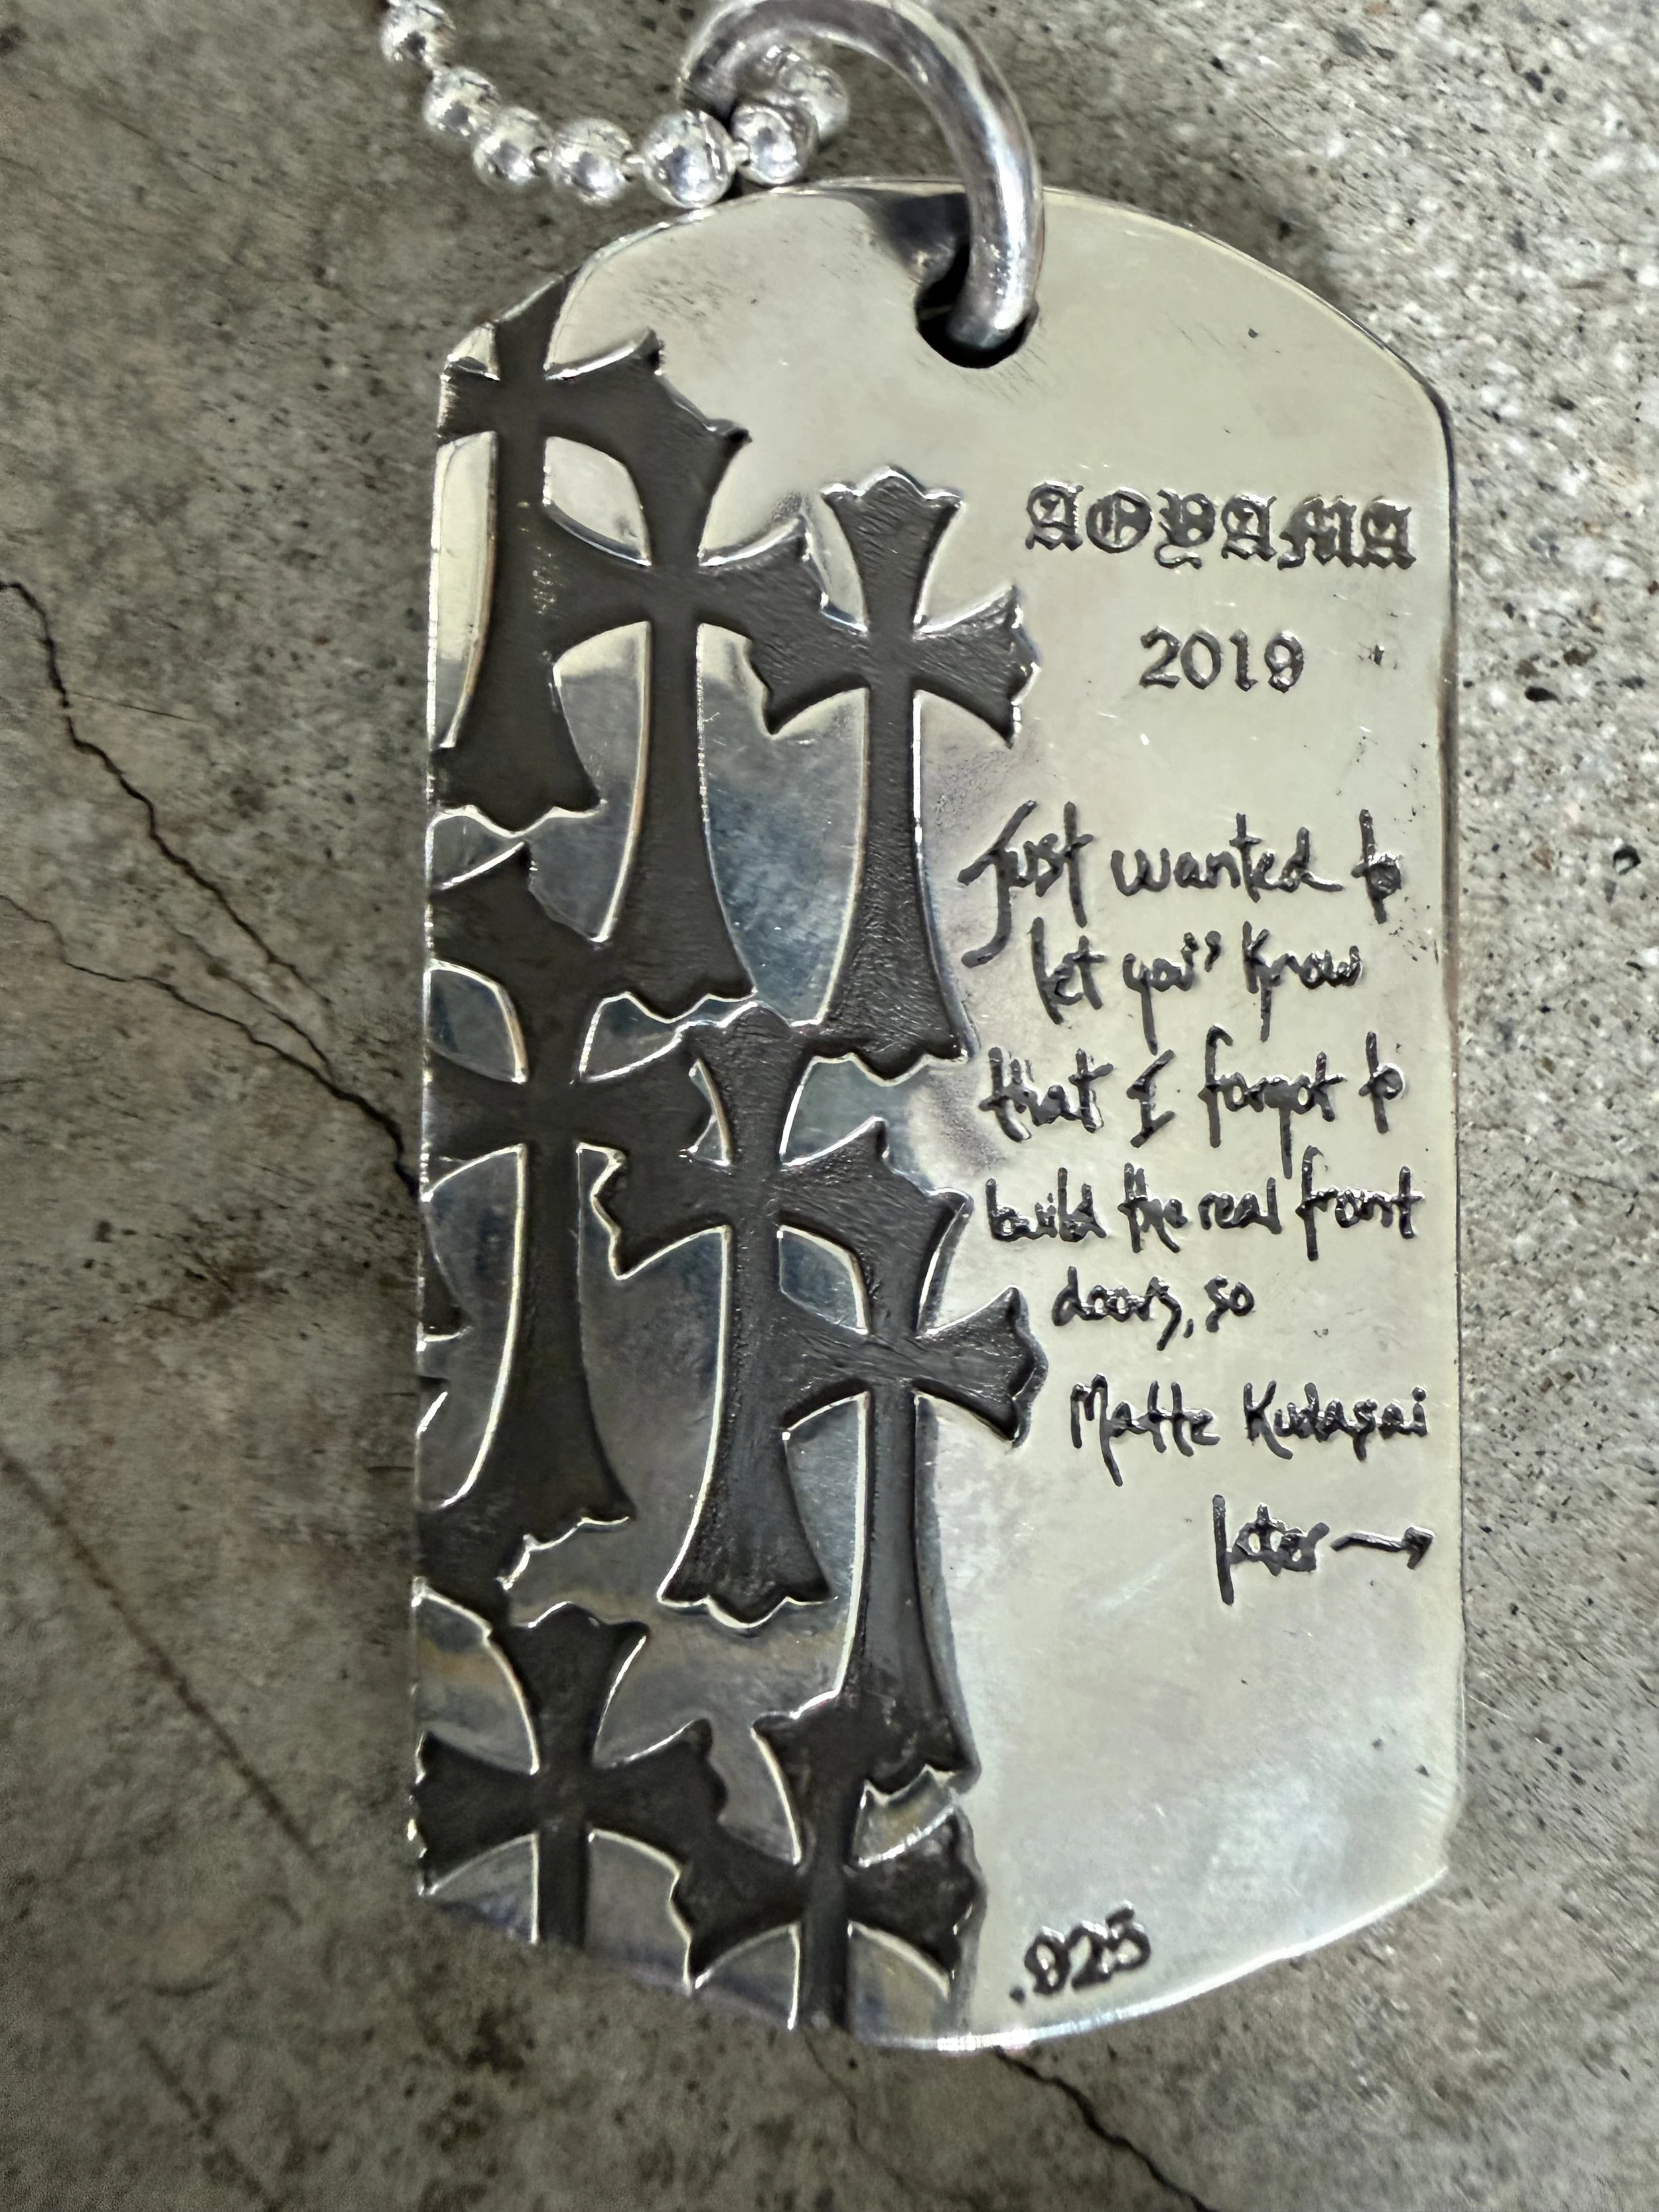 AOYAMA
2019
Just wanted to
let you know
that I forgot to
build the real front
doors, so
Matte Kudasai
later →
.925